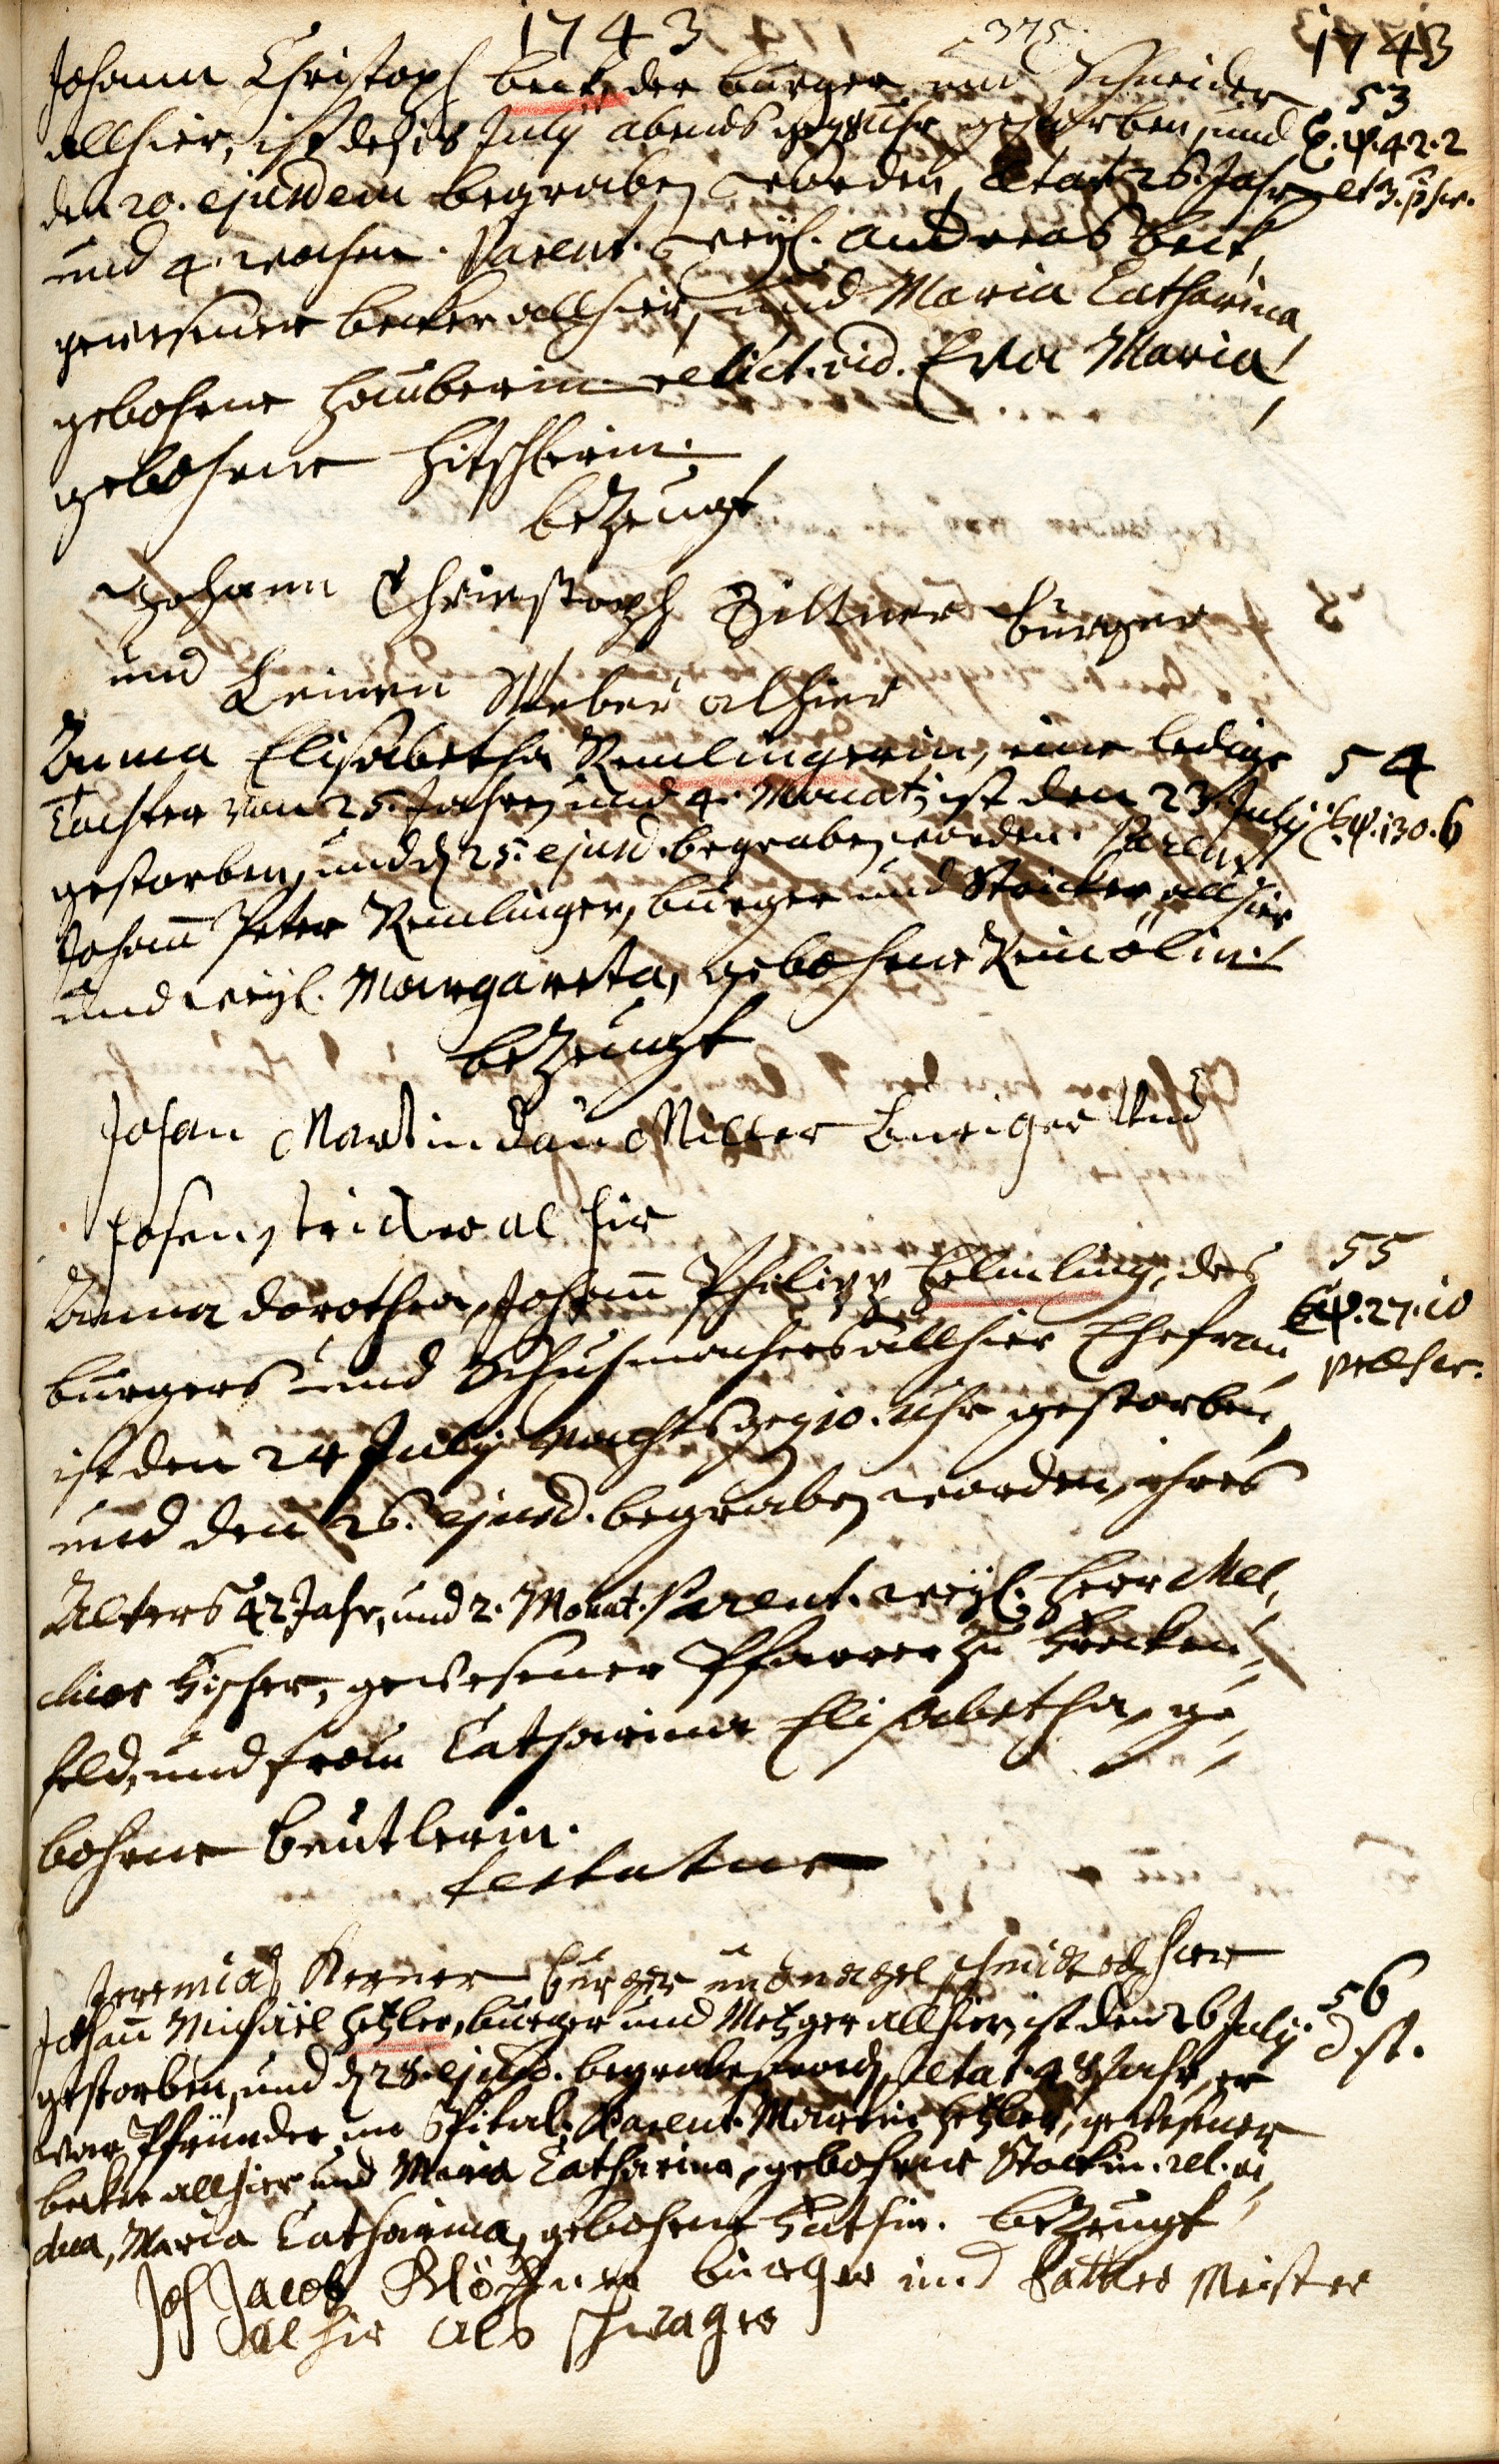 1743
375.
1743
Johann Christoph Beck, der burger und Schneider
53
allhier, ist de 18 July abends geg 8 Uhr gestorben, und
E. ψ. 42. 2
den 20. ejusdem begraben worden, Ætat. 26. Jahr
et 3.
und 4. wochen. Parent. weyl. Andreas Beck,
gewesener becker allhier, und Maria Catharina,
gebohrne Hauberin. relict. vid. Eva Maria,
gebohrne Hitschlerin.
bezeugt
Johann Christoph Zillner burger
und Leinen Weber alhier
Anna Elisabetha Remlingerin, eine ledige
54
Tochter von 25. Jahren und 4. Monat, ist den 23 July
ψ. 130. 6
gestorben, und d 25. ejusd. begraben worden. Parent.
Johann Peter Remlinger, burger und Stricker allhier
und weyl. Margareta, gebohrne
bezeugt
Johan Martin Dau Miller Buriger Und
hosenstricker al hir
Anna Dorothea, Johann Philipp Helmling, des
55
burgers und Schuhmachers allhier Ehefrau
ψ. 27. 10
ist den 24 July nachts geg 10. Uhr gestorben,
und den 26. ejusd. begraben worden, ihres
Alters 42 Jahr, und 2. Monat. Parent. weyl. Herr Mel,
chior Fischer, gewesener Pfarrer zu
feld, und frau Catharina Elisabetha, ge,
bohrne Beutlerin.
testatur
Jeremias Kerner burger und nagel schmidt alhier
Johann Michael Hetzler, burger und Metzger allhier, ist den 26 July
56
gestorben, und d 28. ejusd. begraben word, Ætat. 48 Jahr, er
d st.
war Pfründer im Spital. Parent. Martin Hetzler, gewesener
becker allhier und Maria Catharina, gebohrne Stöckin. rel. vi,
dua, Maria Catharina, gebohrne bezeugt
Joh Jacob burger und Sattler Meister
al hir als schwager